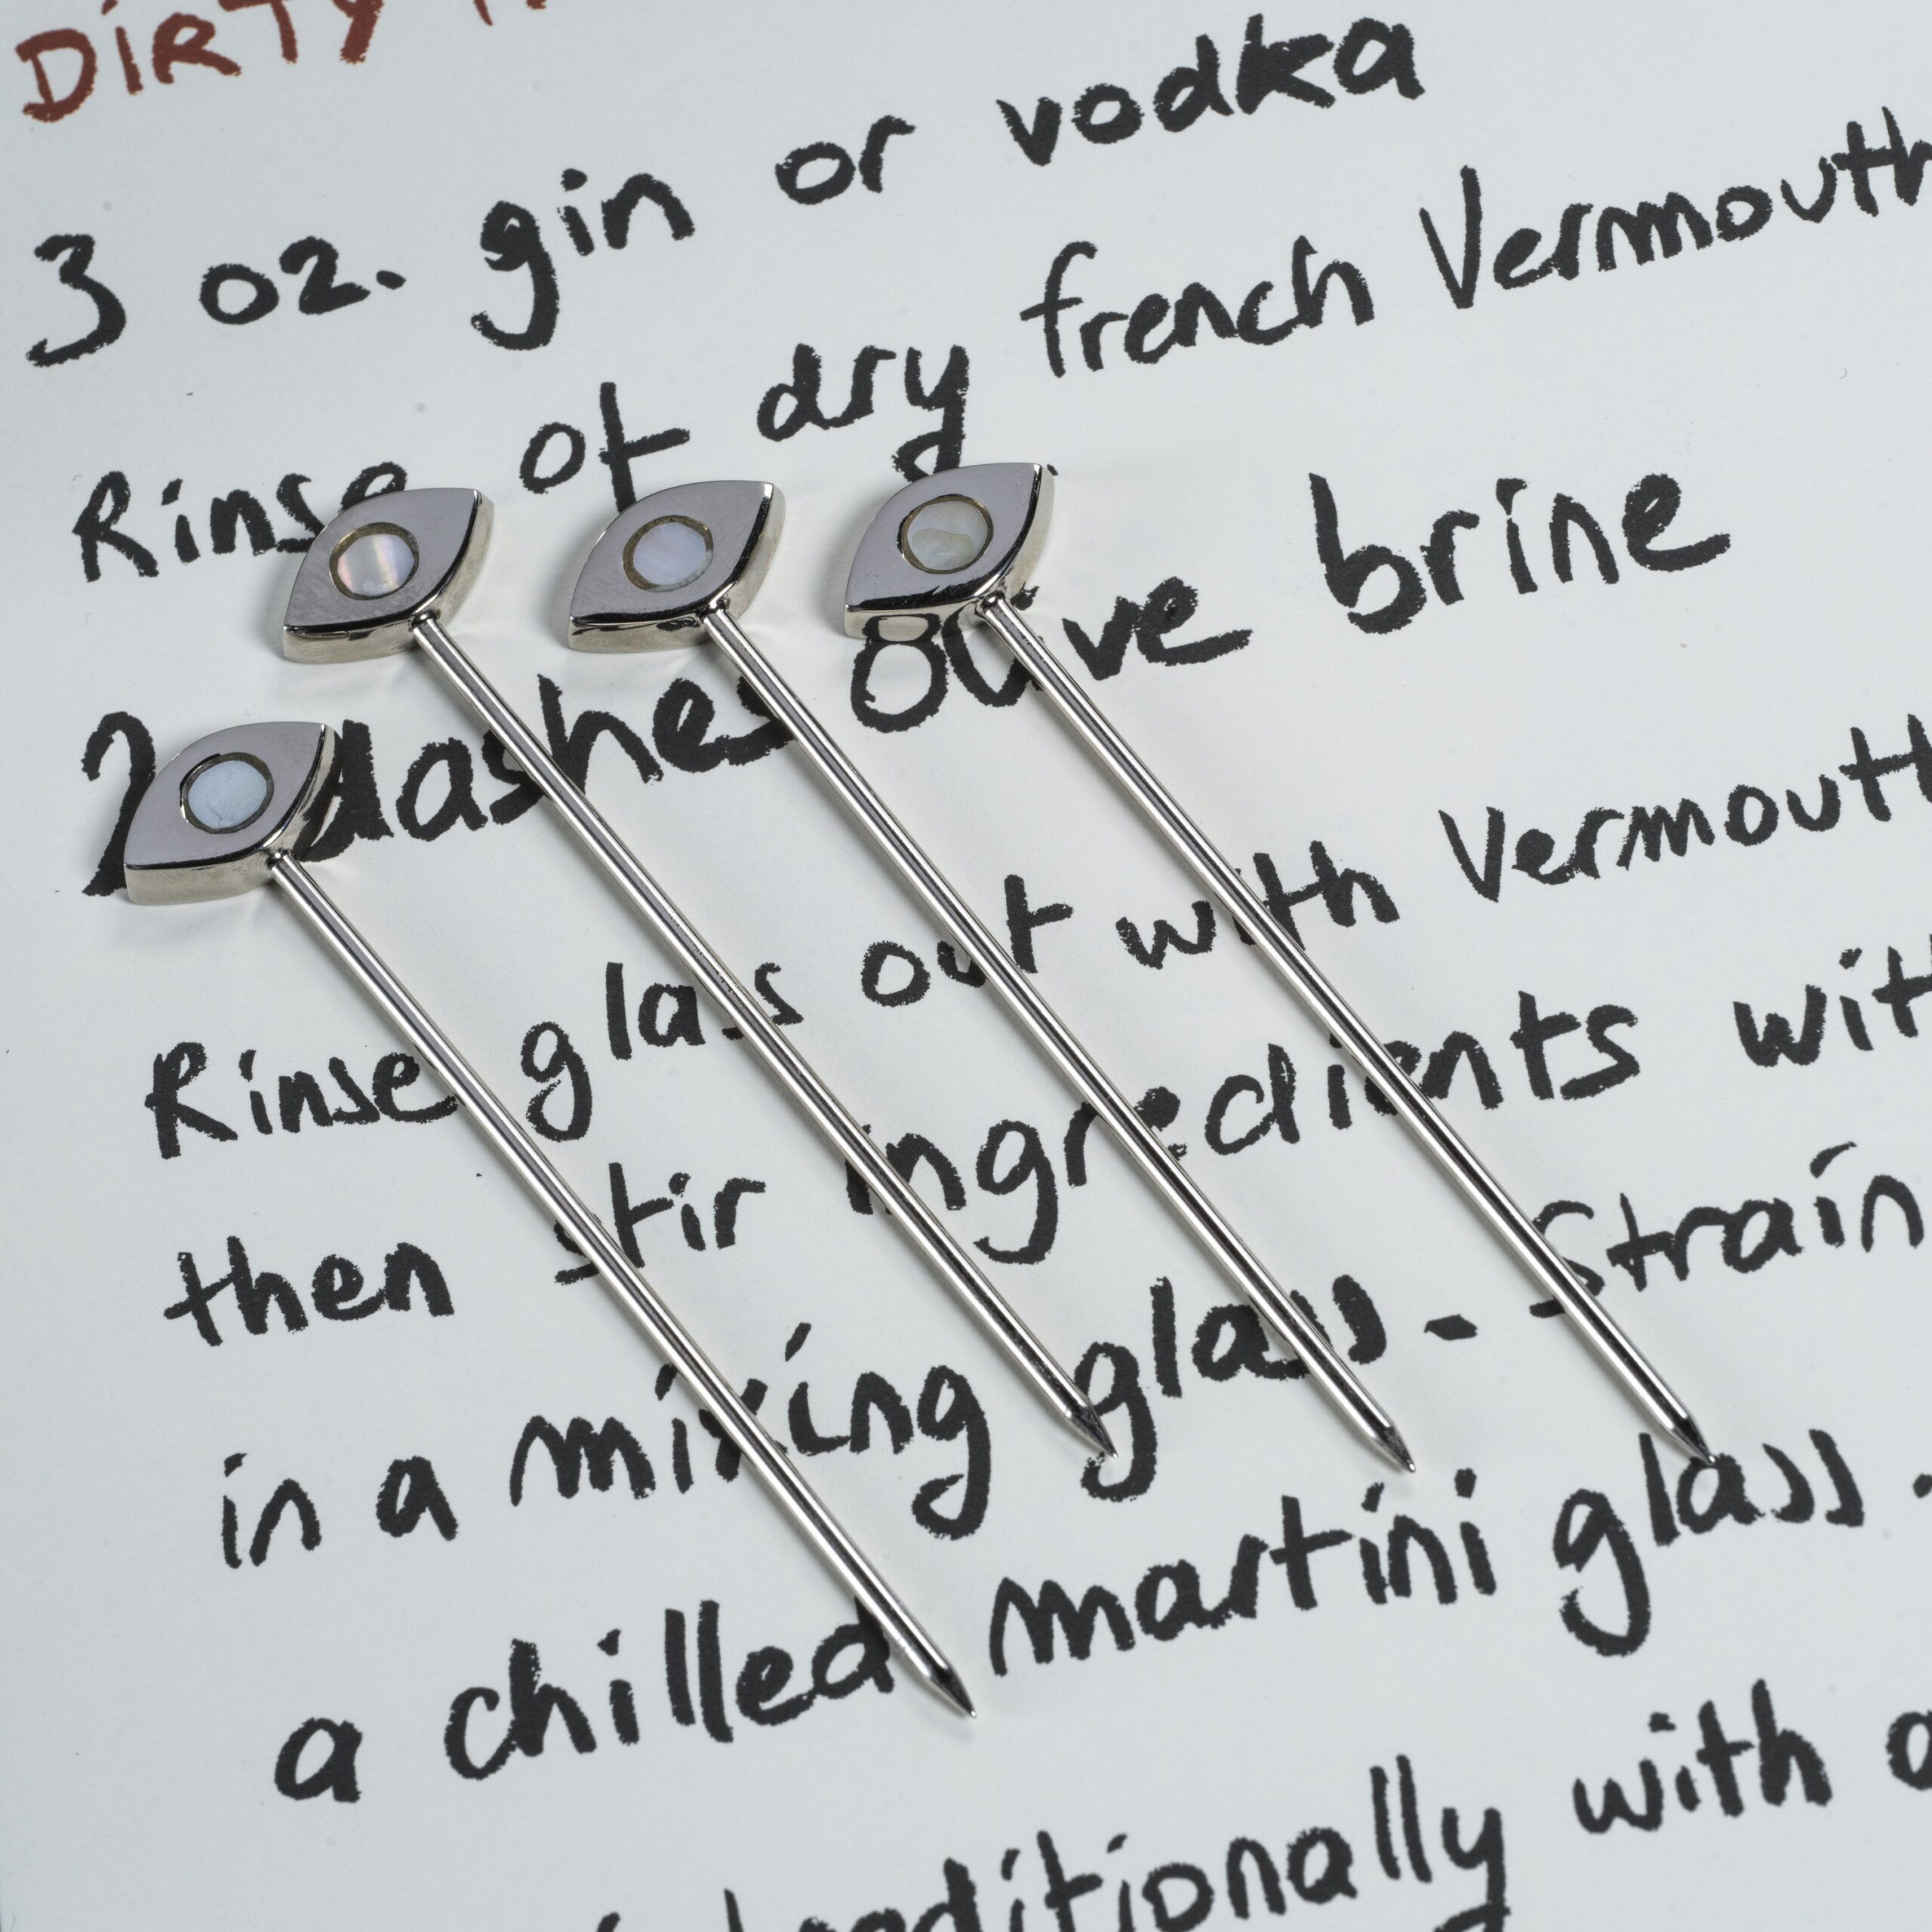 DiRTY
3 oz. gin or vodka
Rinse of dry french Vermouth
2 dashes Olive brine
Rinse glass out with Vermouth
then stir ingredients with
in a mixing glass. Strain
a chilled martini glass.
traditionally with